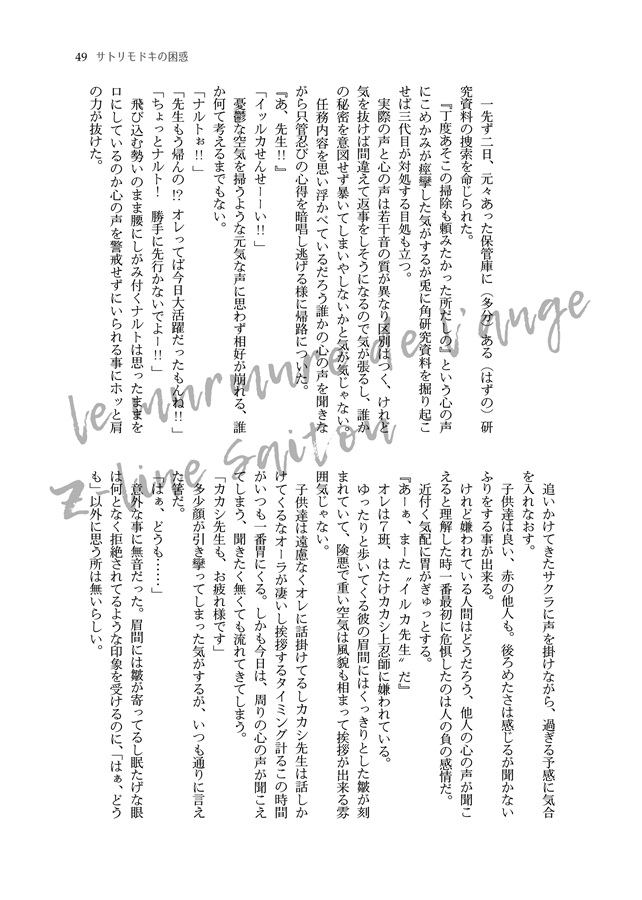 49　サトリモドキの困惑
　一先ず二日、元々あった保管庫に（多分）ある（はずの）研
究資料の捜索を命じられた。
　『丁度あそこの掃除も頼みたかった所だしの』という心の声
にこめかみが痙攣した気がするが兎に角研究資料を掘り起こ
せば三代目が対処する目処も立つ。
　実際の声と心の声は若干音の質が異なり区別はつく、けれど
気を抜けば間違えて返事をしそうになるので気が張るし、誰か
の秘密を意図せず暴いてしまいやしないかと気が気じゃない。
　任務内容を思い浮かべているだろう誰かの心の声を聞きな
がら只管忍びの心得を暗唱し逃げる様に帰路についた。
『あ、先生!!』
「イッルカせんせーーい!!」
　憂鬱な空気を掃うような元気な声に思わず相好が崩れる、誰
か何て考えるまでもない。
「ナルトぉ!!」
「先生もう帰んの!?　オレってば今日大活躍だったもんね!!」
「ちょっとナルト!　勝手に先行かないでよー!!」
　飛び込む勢いのまま腰にしがみ付くナルトは思ったままを
口にしているのか心の声を警戒せずにいられる事にホッと肩
の力が抜けた。
　追いかけてきたサクラに声を掛けながら、過ぎる予感に気合
を入れなおす。
　子供達は良い、赤の他人も。後ろめたさは感じるが聞かない
ふりをする事が出来る。
　けれど嫌われている人間はどうだろう、他人の心の声が聞こ
えると理解した時一番最初に危惧したのは人の負の感情だ。
　近付く気配に胃がぎゅっとする。
『あーぁ、まーた〝イルカ先生〟だ』
　オレは７班、はたけカカシ上忍師に嫌われている。
　ゆったりと歩いてくる彼の眉間にはくっきりとした皺が刻
まれていて、険悪で重い空気は風貌も相まって挨拶が出来る雰
囲気じゃない。
　子供達は遠慮なくオレに話掛けてるしカカシ先生は話しか
けてくるなオーラが凄いし挨拶するタイミング計るこの時間
がいつも一番胃にくる。しかも今日は、周りの心の声が聞こえ
てしまう、聞きたく無くても流れてきてしまう。
「カカシ先生も、お疲れ様です」
　多少顔が引き攣ってしまった気がするが、いつも通りに言え
た筈だ。
「はぁ、どうも……」
　意外な事に無音だった。眉間には皺が寄ってるし眠たげな眼
は何となく拒絶されてるような印象を受けるのに、「はぁ、どう
も」以外に思う所は無いらしい。
Le murmure de l'ange
Z-Line Saitou